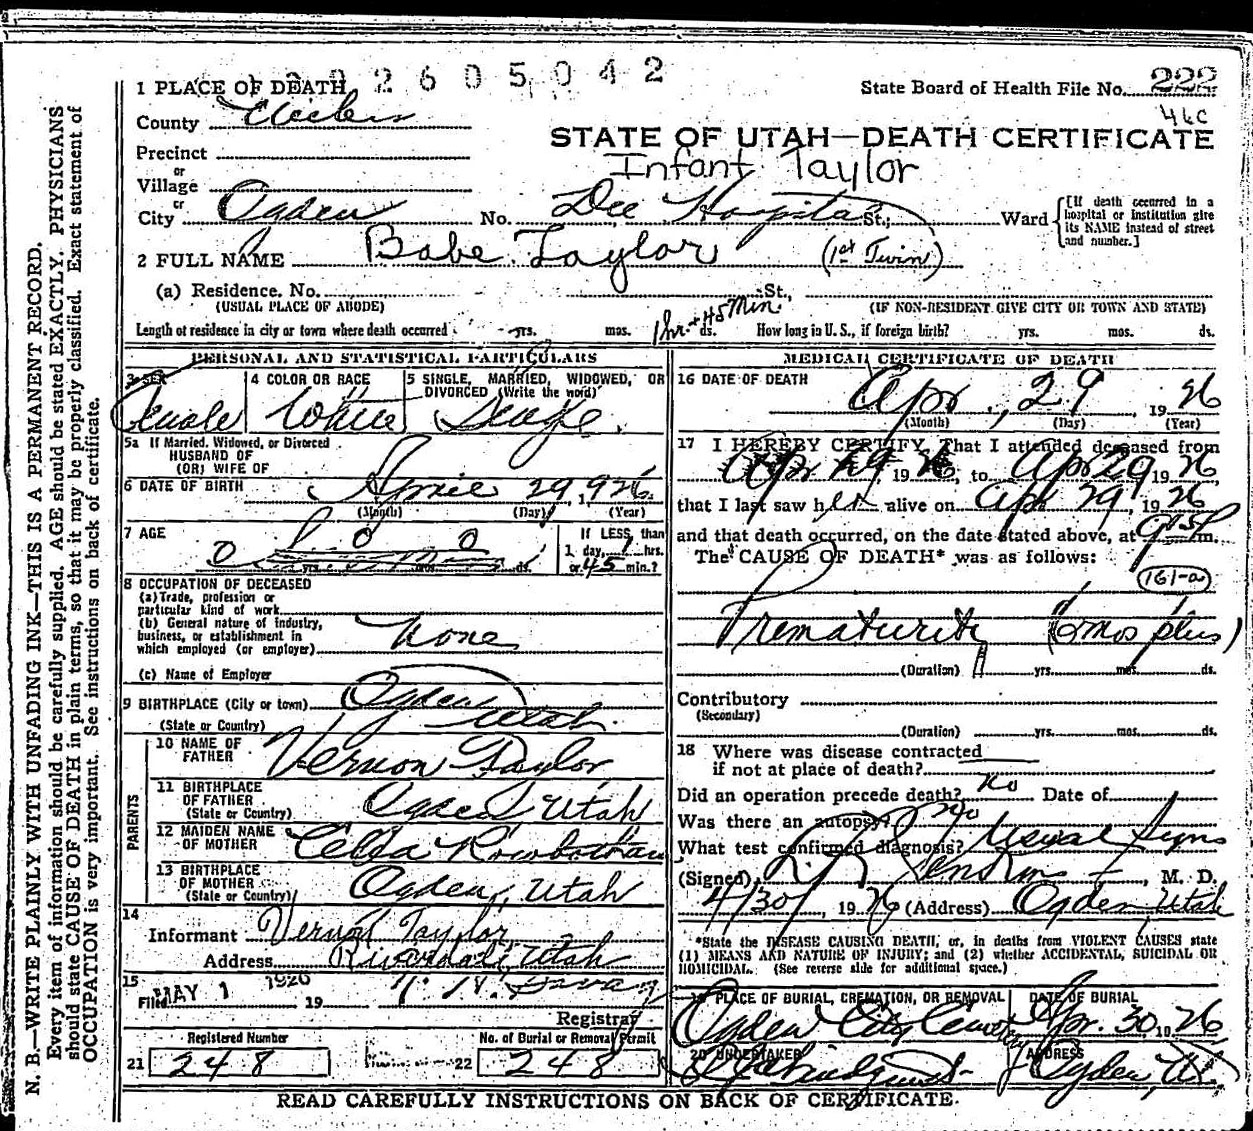 2605042
1 PLACE OF DEATH
State Board of Health File No. 222
46C
County Weber
STATE OF UTAH—DEATH CERTIFICATE
Precinct
Infant Taylor
or
Village
or
City Ogden No. Dee Hospital St., Ward
[If death occurred in a hospital or institution give its NAME instead of street and number.]
2 FULL NAME Babe Taylor (1st Twin)
(a) Residence. No. St.,
(USUAL PLACE OF ABODE) (IF NON-RESIDENT GIVE CITY OR TOWN AND STATE)
Length of residence in city or town where death occurred yrs. mos. 1 hr. + 45 Min. ds. How long in U. S., if foreign birth? yrs. mos. ds.
PERSONAL AND STATISTICAL PARTICULARS
3 SEX 4 COLOR OR RACE 5 SINGLE, MARRIED, WIDOWED, OR DIVORCED (Write the word)
Female White Single
5a If Married, Widowed, or Divorced
HUSBAND OF
(OR) WIFE OF
6 DATE OF BIRTH April 29, 1926
(Month) (Day) (Year)
7 AGE 0 0 0 If LESS than
yrs. mos. ds. 1 day, 1 hrs.
or 45 min.?
8 OCCUPATION OF DECEASED
(a) Trade, profession or
particular kind of work
(b) General nature of industry,
business, or establishment in
which employed (or employer) None
(c) Name of Employer
9 BIRTHPLACE (City or town) Ogden
(State or Country) Utah.
PARENTS
10 NAME OF FATHER Vernon Taylor
11 BIRTHPLACE OF FATHER Ogden, Utah
(State or Country)
12 MAIDEN NAME OF MOTHER Celia Rowbotham
13 BIRTHPLACE OF MOTHER Ogden, Utah
(State or Country)
14
Informant Vernon Taylor
Address Riverdale, Utah
15
Filed MAY 1 1926 19
Registrar
Registered Number No. of Burial or Removal Permit
21 248 22 248
MEDICAL CERTIFICATE OF DEATH
16 DATE OF DEATH
Apr., 29, 1926
(Month) (Day) (Year)
17 I HEREBY CERTIFY, That I attended deceased from
Apr 29, 1926, to Apr 29 1926
that I last saw her alive on Apr 29, 1926
and that death occurred, on the date stated above, at m.
The CAUSE OF DEATH* was as follows:
161-a
Prematurity (6 mos plus)
(Duration) yrs. mos. ds.
Contributory
(Secondary)
(Duration) yrs. mos. ds.
18 Where was disease contracted
if not at place of death?
Did an operation precede death? no Date of
Was there an autopsy? no
What test confirmed diagnosis? Usual signs
(Signed) , M. D.
4/30, 1926 (Address) Ogden Utah
*State the DISEASE CAUSING DEATH, or, in deaths from VIOLENT CAUSES state
(1) MEANS AND NATURE OF INJURY; and (2) whether ACCIDENTAL, SUICIDAL OR
HOMICIDAL. (See reverse side for additional space.)
19 PLACE OF BURIAL, CREMATION, OR REMOVAL DATE OF BURIAL
Ogden City Cemetery Apr. 30, 1926
20 UNDERTAKER ADDRESS
Ogden, Ut.
READ CAREFULLY INSTRUCTIONS ON BACK OF CERTIFICATE.
N. B.—WRITE PLAINLY WITH UNFADING INK—THIS IS A PERMANENT RECORD.
Every item of information should be carefully supplied. AGE should be stated EXACTLY. PHYSICIANS
should state CAUSE OF DEATH in plain terms, so that it may be properly classified. Exact statement of
OCCUPATION is very important. See instructions on back of certificate.